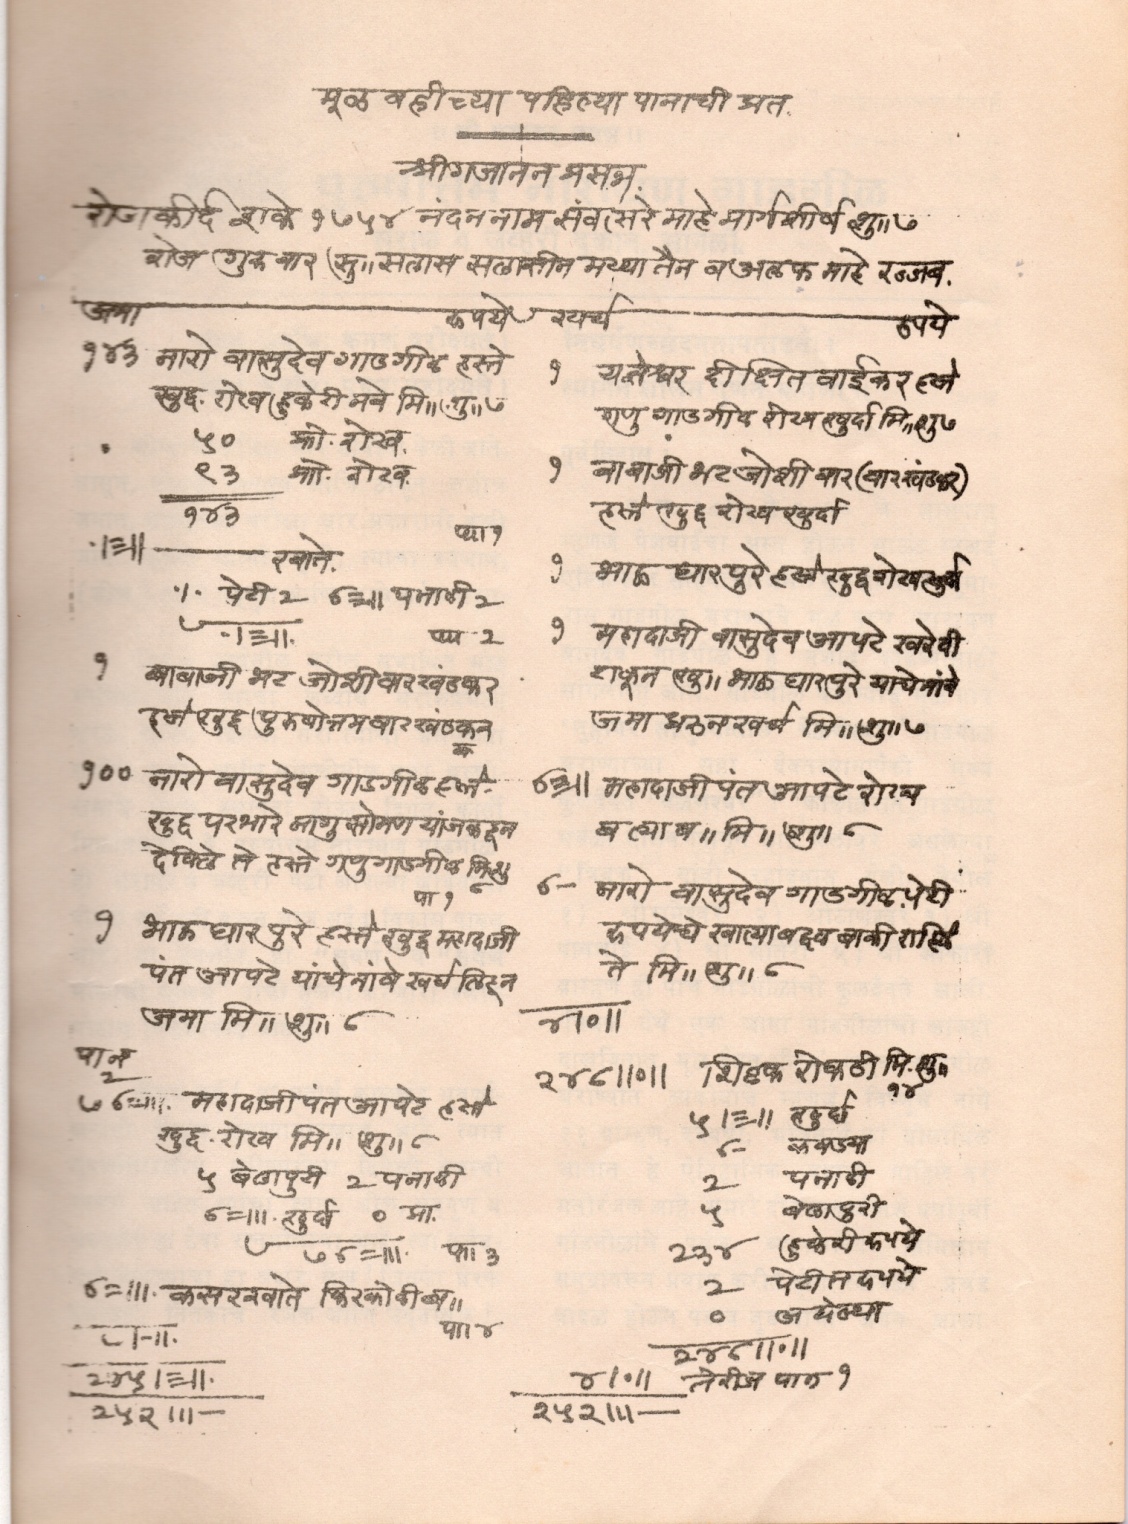 मूळ वहीच्या पहिल्या पानाची प्रत.
श्रीगजानन प्रसन्न.
रोजकीर्द शके १७५४ नंदननाम संवत्सरे माहे मार्गशीर्ष शु॥ ७
रोज गुरुवार सु॥ सलास सलासीन मय्या तैन व अलफ माहे रज्जब.
जमा रुपये खर्च रुपये
१४३ नारो वासुदेव गाडगीळ हस्ते
खुद्द. रोख हुकेरी मवे मि॥ शु॥ ७
५० रोख.
९३ रोख
१४३
पा १
खाते.
पेटी २ पनाळी २
पा २
१ बाबाजी भट जोशी वारखंडकर
हस्ते खुद्द पुरुषोत्तम वारखंडकर
१०० नारो वासुदेव गाडगीळ हस्ते
खुद्द परभारे सोमण यांजकडून
देविले ते हस्ते गणु गाडगीळ मि शु ८
पा १
१ भाऊ घारपुरे हस्ते खुद्द महादाजी
पंत आपटे यांचे नांवे खर्च लिहून
जमा मि॥ शु॥ ८
पान २
७८=॥।. महादाजीपंत आपटे हस्ते
खुद्द. रोख मि॥ शु॥ ८
५ बेलापुरी २ पनाळी
८=॥।. खुर्दा ०
७८=॥।. पा ३
८=॥।. कसरखाते किरकोळी
पा ४
८।-॥.
२४५।≡॥.
२५२॥।-
१ यज्ञेश्वर दीक्षित वाईकर हस्ते
गणु गाडगीळ रोख खुर्दा मि॥ शु ७
१ बाबाजी भट जोशी वार (वारखंडकर)
हस्ते खुद्द रोख खुर्दा
१ भाऊ घारपुरे हस्ते खुद्द रोख खुर्दा
१ महादाजी वासुदेव आपटे खरेदी
भाऊ घारपुरे याचे नांवे
जमा धरून खर्च मि॥ शु॥ ७
८≡॥ महादाजी पंत आपटे रोख
मि॥ शु॥ ८
८- नारो वासुदेव गाडगीळ. पेटी
रुपयेचे खात्याबद्दल बाकी राहिले
ते मि॥ शु॥ ८
४।०॥
२४८॥०॥ शिल्लक रोकडी मि. शु॥ १४
५।≡॥ खुर्दा
८- कवड्या
२ पनाळी
५ बेलापुरी
२३४ हुकेरी रुपये
२ पेटीत रुपये
०
२४८॥०॥
४।०॥ तेरीज पान १
२५२॥।-